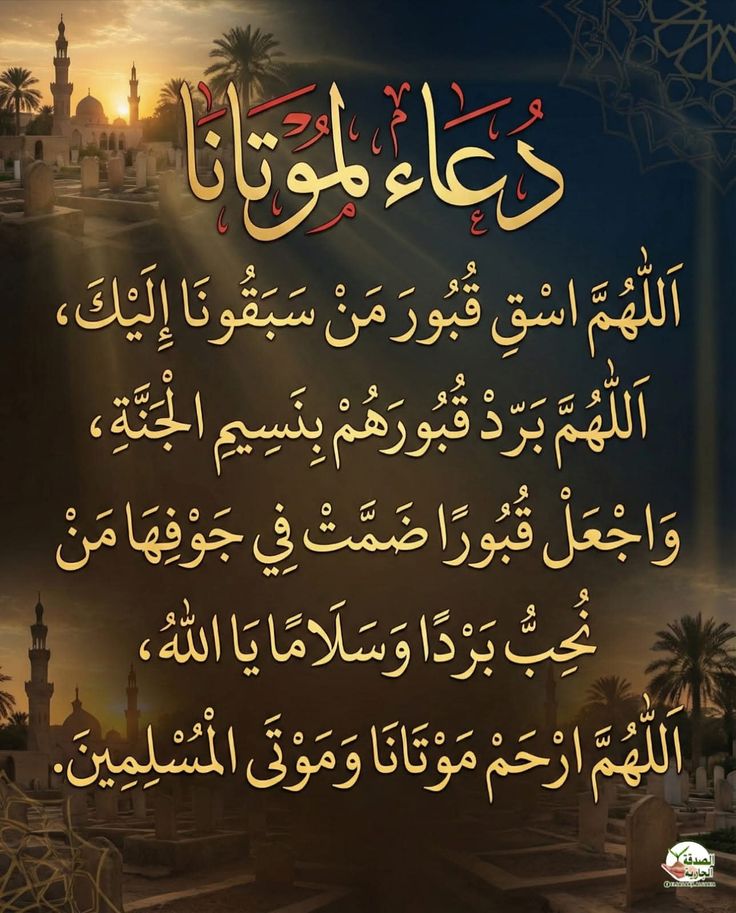 دُعَاء لمُوتَانَا
اَللّٰهُمَّ اسْقِ قُبُورَ مَنْ سَبَقُونَا إِلَيْكَ،
اَللّٰهُمَّ بَرّدْ قُبُورَهُمْ بِنَسِيمِ الْجَنَّةِ،
وَاجْعَلْ قُبُورًا ضَمَّتْ فِي جَوْفِهَا مَنْ
نُحِبُّ بَرْدًا وَسَلَامًا يَا اللّٰهُ،
اَللّٰهُمَّ ارْحَمْ مَوْتَانَا وَمَوْتَى الْمُسْلِمِينَ.
الصدقة
الجارية